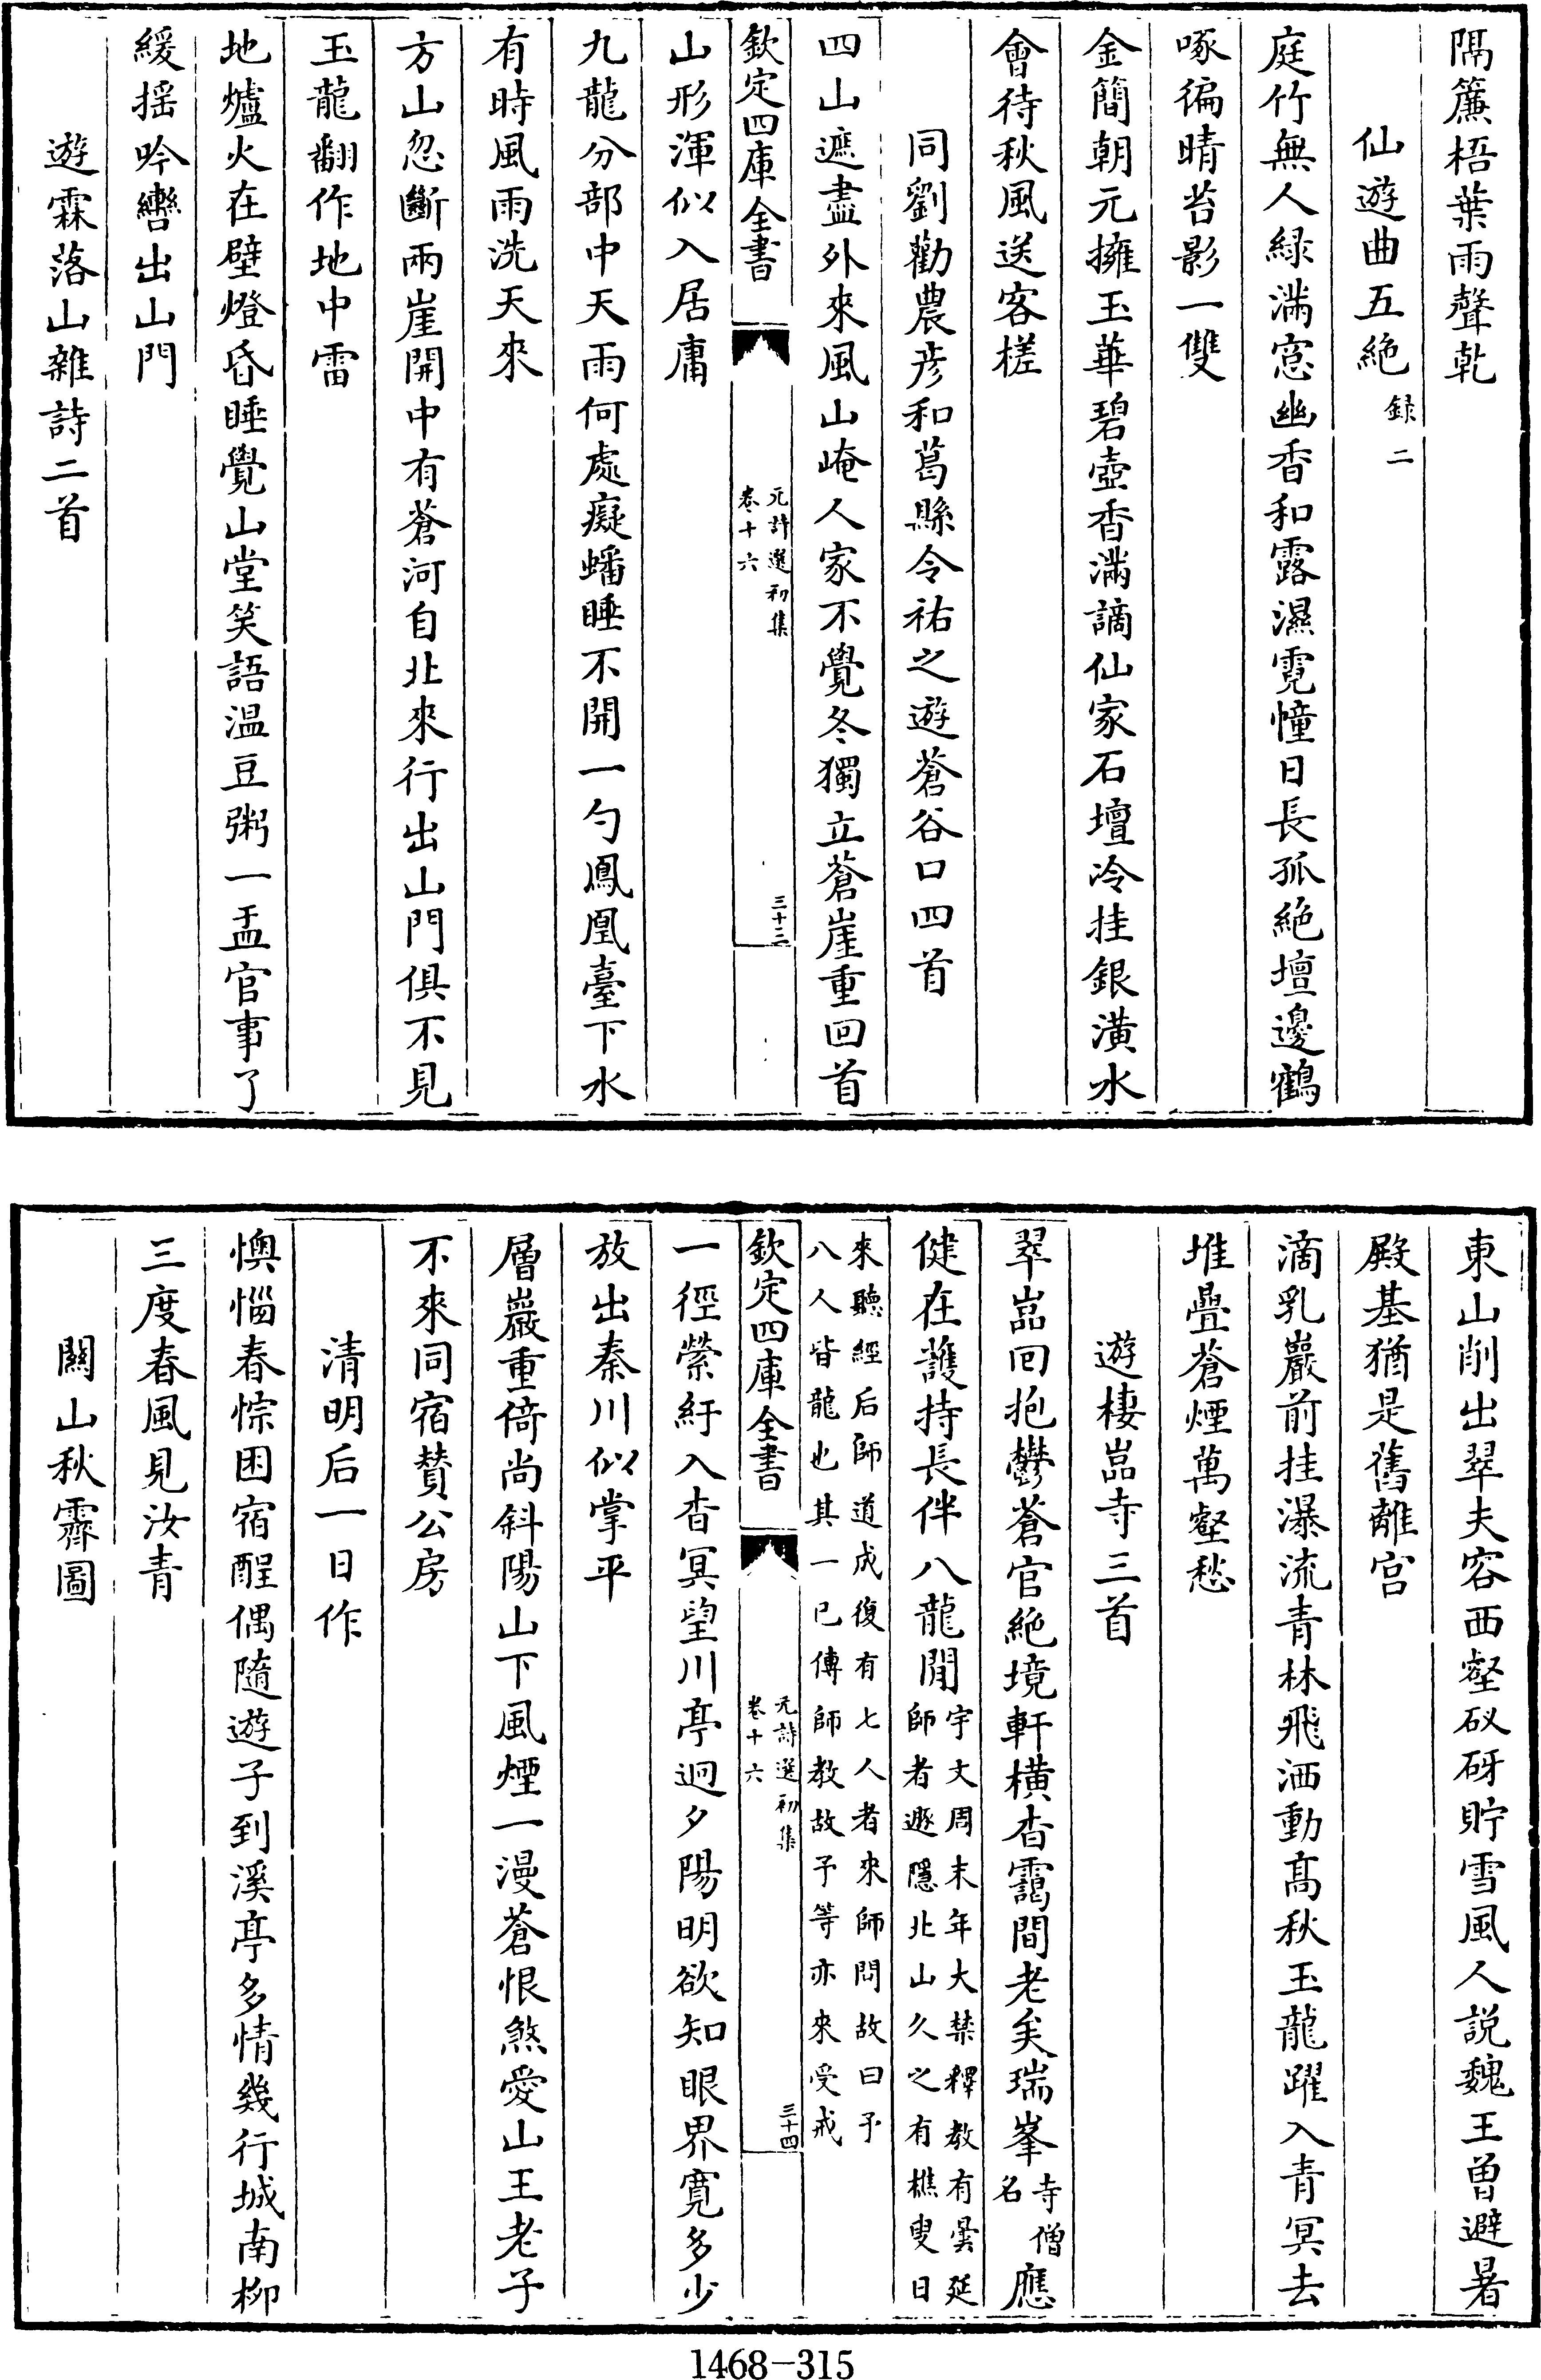 隔簾梧葉雨聲乾
仙遊曲五絶録二
庭竹無人緑滿窓幽香和露濕霓幢日長孤絶壇邊鶴
啄徧晴苔影一雙
金簡朝元擁玉華碧壺香滿謫仙家石壇冷挂銀潢水
會待秋風送客槎
同劉勸農彦和葛縣令祐之遊蒼谷口四首
四山遮盡外來風山崦人家不覺冬獨立蒼崖重回首
欽定四庫全書
元詩選初集
卷十六
三十三
山形渾似入居庸
九龍分部中天雨何處癡蟠睡不開一勺鳳凰臺下水
有時風雨洗天來
方山忽斷兩崖開中有蒼河自北來行出山門俱不見
玉龍翻作地中雷
地爐火在壁燈昏睡覺山堂笑語温豆粥一盂官事了
緩揺吟轡出山門
遊霖落山雜詩二首
東山削出翠夫容西壑砅砑貯雪風人説魏王曽避暑
殿基猶是舊離宫
滴乳巖前挂瀑流青林飛洒動髙秋玉龍躍入青冥去
堆疊蒼煙萬壑愁
遊棲嵓寺三首
翠嵓回抱鬱蒼官絶境軒横杳靄間老矣瑞峯寺僧名應
健在護持長伴八龍閒宇文周末年大禁釋教有曇延
師者遯隱北山久之有樵叟日
來聽經后師道成復有七人者來師問故曰予
八人皆龍也其一已傳師教故予等亦來受戒
欽定四庫全書
元詩選初集
卷十六
三十四
一徑縈紆入杳冥望川亭迥夕陽明欲知眼界寛多少
放出秦川似掌平
層巖重倚尚斜陽山下風煙一漫蒼恨煞愛山王老子
不來同宿賛公房
清明后一日作
懊惱春悰困宿酲偶隨遊子到溪亭多情幾行城南柳
三度春風見汝青
闗山秋霽圖
1468-315